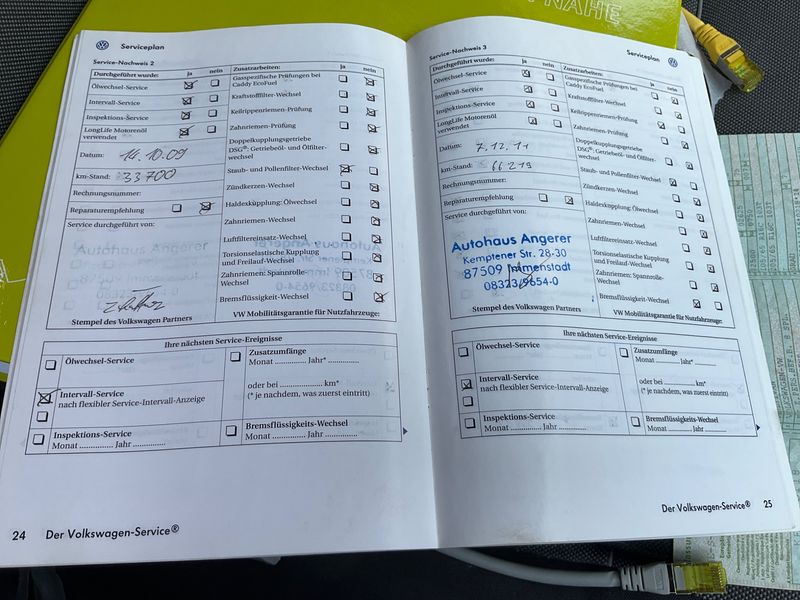 NAHE
Serviceplan
Service-Nachweis 2
Durchgeführt wurde: ja nein
Ölwechsel-Service
Intervall-Service
Inspektions-Service
LongLife Motorenöl
verwendet
Datum: 14.10.09
km-Stand: 33700
Rechnungsnummer:
Reparaturempfehlung
Service durchgeführt von:
Autohaus Angerer
Stempel des Volkswagen Partners
Zusatzarbeiten: ja nein
Gasspezifische Prüfungen bei
Caddy EcoFuel
Kraftstofffilter-Wechsel
Keilrippenriemen-Prüfung
Zahnriemen-Prüfung
Doppelkupplungsgetriebe
DSG®: Getriebeöl- und Ölfilter-
wechsel
Staub- und Pollenfilter-Wechsel
Zündkerzen-Wechsel
Haldexkupplung: Ölwechsel
Zahnriemen-Wechsel
Luftfiltereinsatz-Wechsel
Torsionselastische Kupplung
und Freilauf-Wechsel
Zahnriemen: Spannrolle-
Wechsel
Bremsflüssigkeit-Wechsel
VW Mobilitätsgarantie für Nutzfahrzeuge:
Ihre nächsten Service-Ereignisse
Ölwechsel-Service
Intervall-Service
nach flexibler Service-Intervall-Anzeige
Inspektions-Service
Monat .............. Jahr ..............
Zusatzumfänge
Monat .............. Jahr* ..............
oder bei .................... km*
(* je nachdem, was zuerst eintritt)
Bremsflüssigkeits-Wechsel
Monat .............. Jahr ..............
24 Der Volkswagen-Service®
Service-Nachweis 3
Serviceplan
Durchgeführt wurde: ja nein
Ölwechsel-Service
Intervall-Service
Inspektions-Service
LongLife Motorenöl
verwendet
Datum: 7.12.11
km-Stand: 66219
Rechnungsnummer:
Reparaturempfehlung
Service durchgeführt von:
Autohaus Angerer
Kemptener Str. 28-30
87509 Immenstadt
08323/9654-0
Stempel des Volkswagen Partners
Zusatzarbeiten: ja nein
Gasspezifische Prüfungen bei
Caddy EcoFuel
Kraftstofffilter-Wechsel
Keilrippenriemen-Prüfung
Zahnriemen-Prüfung
Doppelkupplungsgetriebe
DSG®: Getriebeöl- und Ölfilter-
wechsel
Staub- und Pollenfilter-Wechsel
Zündkerzen-Wechsel
Haldexkupplung: Ölwechsel
Zahnriemen-Wechsel
Luftfiltereinsatz-Wechsel
Torsionselastische Kupplung
und Freilauf-Wechsel
Zahnriemen: Spannrolle-
Wechsel
Bremsflüssigkeit-Wechsel
VW Mobilitätsgarantie für Nutzfahrzeuge:
Ihre nächsten Service-Ereignisse
Ölwechsel-Service
Intervall-Service
nach flexibler Service-Intervall-Anzeige
Inspektions-Service
Monat .............. Jahr ..............
Zusatzumfänge
Monat .............. Jahr* ..............
oder bei .................... km*
(* je nachdem, was zuerst eintritt)
Bremsflüssigkeits-Wechsel
Monat .......... Jahr ..........
Der Volkswagen-Service® 25